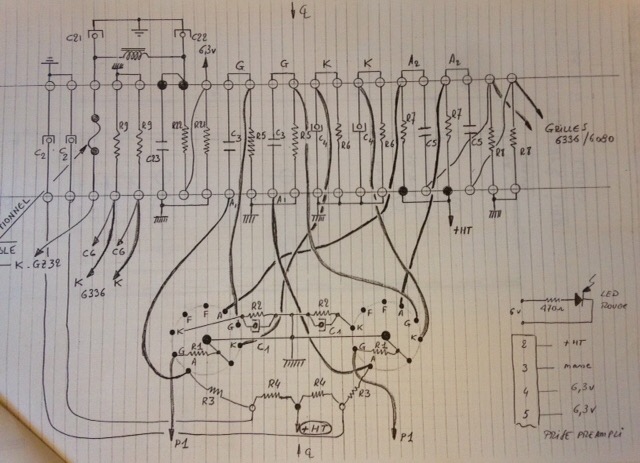 q
C21
C22
6,3v
G
G
K
K
A2
A2
C2
C2
R9
R9
C23
R22
R21
C3
R5
C3
R5
C4
R6
C4
R6
R7
C5
R7
C5
R8
R8
GRILLES
6336/6080
A1
A1
+HT
TIONNEL
BLE
K-GZ32
C6
C6
K
K
6336
F
F
A
R2
R2
F
G
K
C1
C1
K
A
G
K
K
G
R1
A
G
R1
A
R3
R4
R4
R3
+HT
P1
P1
q
6v
470Ω
LED
ROUGE
2 +HT
3 masse
4 6,3v
5 6,3v
PRISE PREAMPLI